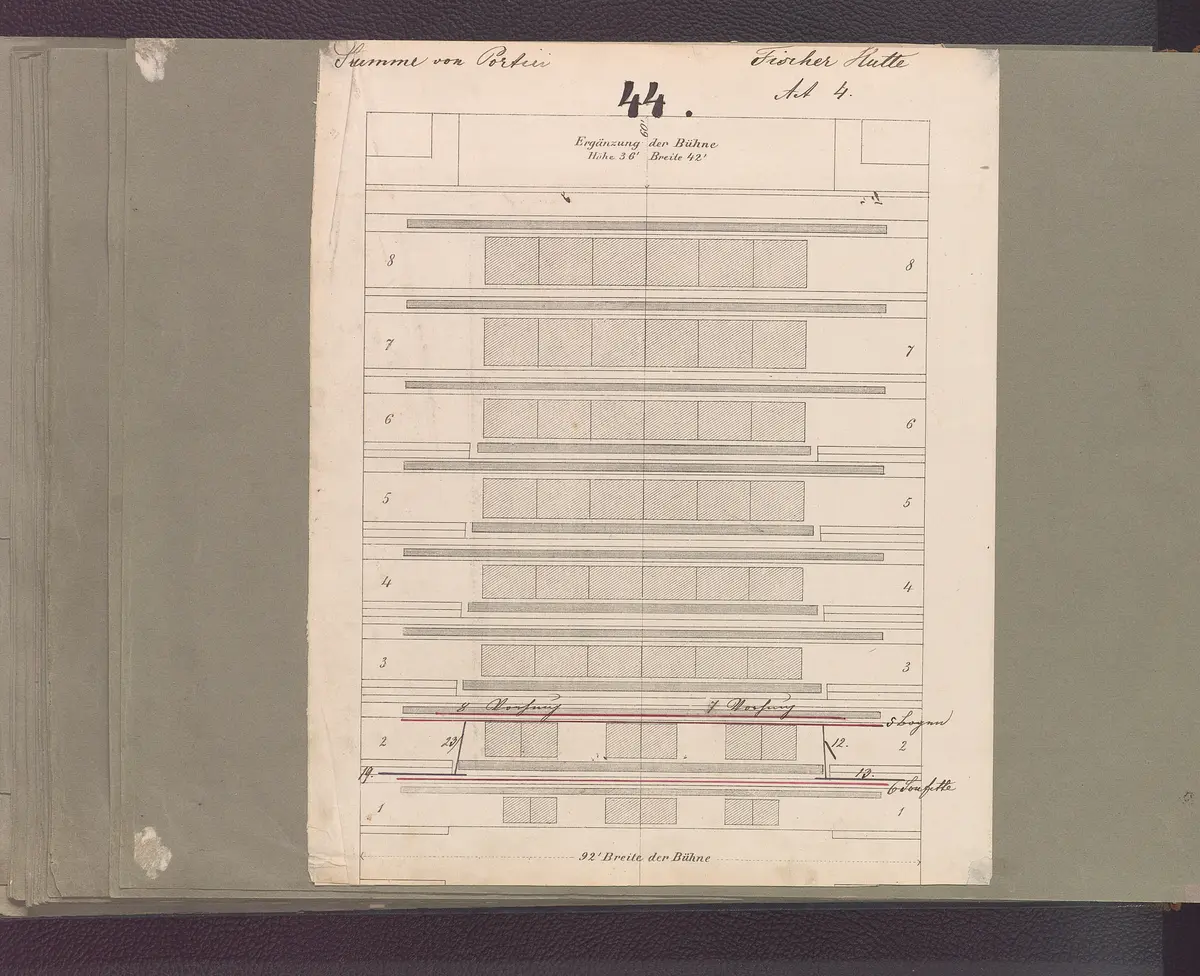 Stumme von Portici
Fischer Hütte
Act 4.
44.
60'
Ergänzung der Bühne
Höhe 36' Breite 42'
8 8
7 7
6 6
5 5
4 4
3 3
8 Vorhang 7 Vorhang
5 Bogen
2 23 12. 2
19. 13.
6 Soufitte
1 1
92' Breite der Bühne